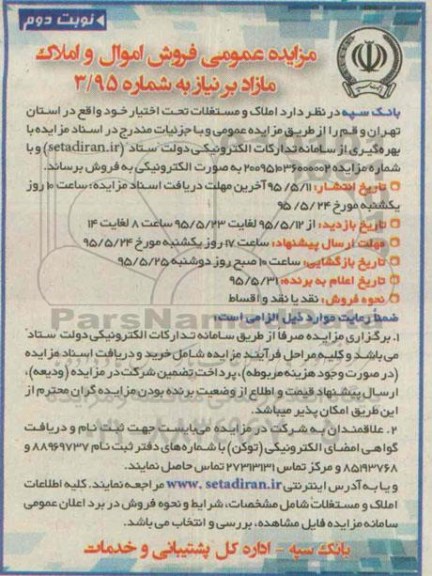 نوبت دوم
مزایده عمومی فروش اموال و املاک
مازاد بر نیاز به شماره ۳/۹۵
بانک سپه در نظر دارد املاک و مستغلات تحت اختیار خود واقع در استان
تهران و قم را از طریق مزایده عمومی و با جزئیات مندرج در اسناد مزایده با
بهره‌گیری از سامانه تدارکات الکترونیکی دولت "ستاد" (setadiran.ir) و با
شماره مزایده ۲۰۰۹۵۱۰۳۶۰۰۰۰۰۲ به صورت الکترونیکی به فروش برساند.
تاریخ انتشار: ۹۵/۵/۱۱ آخرین مهلت دریافت اسناد مزایده: ساعت ۱۰ روز
یکشنبه مورخ ۹۵/۵/۲۴
تاریخ بازدید: از ۹۵/۵/۱۲ لغایت ۹۵/۵/۲۳ ساعت ۸ لغایت ۱۴
مهلت ارسال پیشنهاد: ساعت ۱۷ روز یکشنبه مورخ ۹۵/۵/۲۴
تاریخ بازگشایی: ساعت ۱۰ صبح روز دوشنبه ۹۵/۵/۲۵
تاریخ اعلام به برنده: ۹۵/۵/۳۱
نحوه فروش: نقد یا نقد و اقساط
ضمناً رعایت موارد ذیل الزامی است:
۱. برگزاری مزایده صرفا از طریق سامانه تدارکات الکترونیکی دولت "ستاد"
می باشد و کلیه مراحل فرآیند مزایده شامل خرید و دریافت اسناد مزایده
(در صورت وجود هزینه مربوطه)، پرداخت تضمین شرکت در مزایده (ودیعه)،
ارسال پیشنهاد قیمت و اطلاع از وضعیت برنده بودن مزایده گران محترم از
این طریق امکان پذیر میباشد.
۲. علاقمندان به شرکت در مزایده می‌بایست جهت ثبت نام و دریافت
گواهی امضای الکترونیکی (توکن) با شماره‌های دفتر ثبت نام ۸۸۹۶۹۷۳۷ و
۸۵۱۹۳۷۶۸ و مرکز تماس ۲۷۳۱۳۱۳۱ تماس حاصل نمایند.
و یا به آدرس اینترنتی www.setadiran.ir مراجعه نمایند. کلیه اطلاعات
املاک و مستغلات شامل مشخصات، شرایط و نحوه فروش در برد اعلان عمومی
سامانه مزایده قابل مشاهده، بررسی و انتخاب می باشد.
بانک سپه - اداره کل پشتیبانی و خدمات